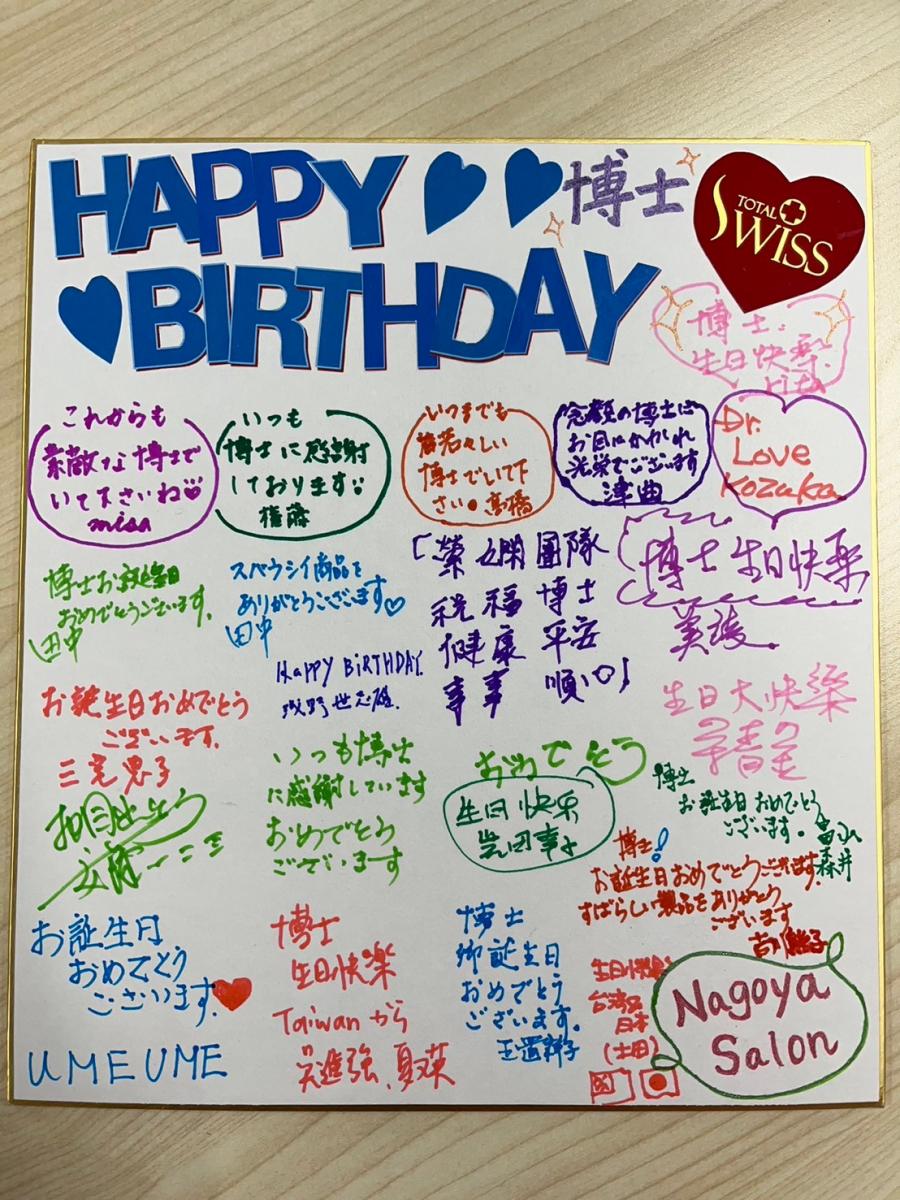 HAPPY
博士
BIRTHDAY
TOTAL
SWISS
博士.
生日快樂
rita
これからも
素敵な博士で
いて下さいね
misa
いつも
博士に感謝
しております
後藤
いつまでも
若々しい
博士でいて下
さい 高橋
念願の博士に
お目にかかれ
光栄でございます
津曲
Dr.
Love
Kozuka
博士お誕生日
おめでとうございます.
田中
スペウシイ商品を
ありがとうございます
田中
「榮 團隊
祝福 博士
健康 平安
事事 順心」
博士生日快楽
美
HAPPY BiRTHDAY.
生日大快樂
お誕生日おめでとう
ございます.
三 恵子
いつも博士
に感謝しています
おめでとう
ございます
おめでとう
生日快乐
博士
お誕生日おめでとう
ございます.
森井
博士!
お誕生日おめでとうございます.
すばらしい製品をありがとう
ございます
吉川
お誕生日
おめでとう
ございます.
UME UME
博士
生日快樂
Taiwanから
吴進強、夏菜
博士
御誕生日
おめでとう
ございます.
玉置
生日快樂
台湾
日本
(土田)
Nagoya
Salon